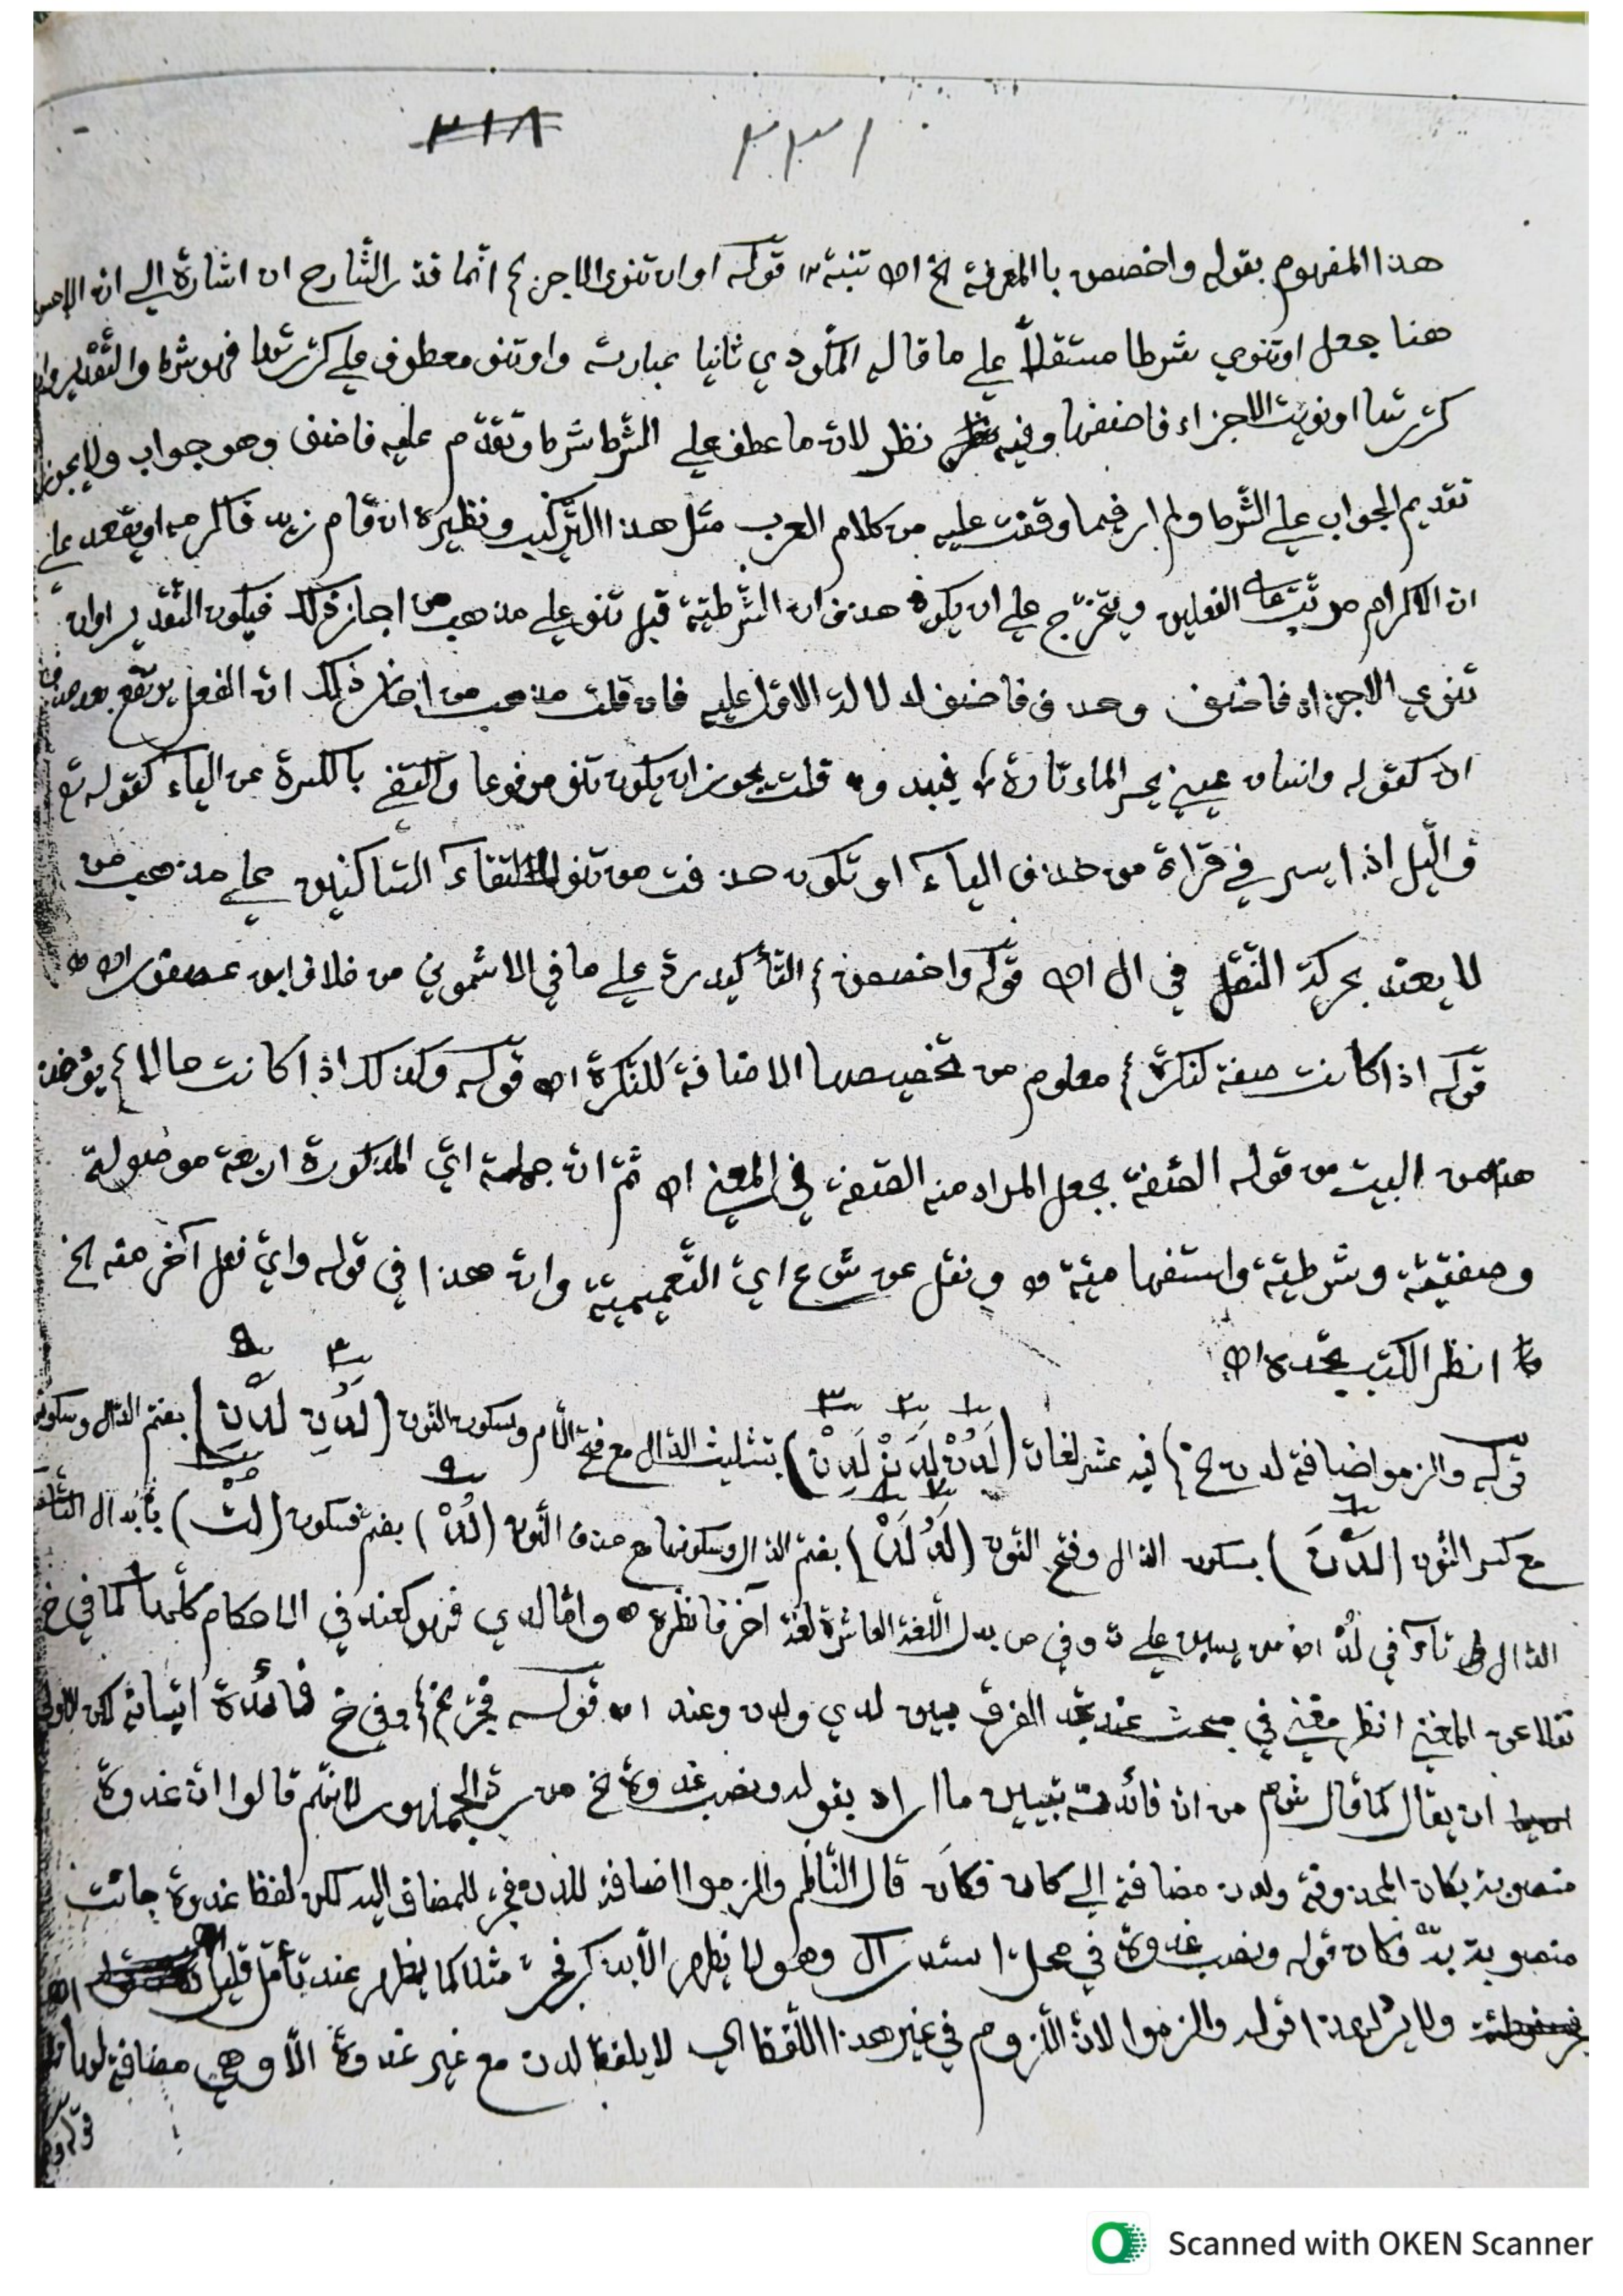 ٣١٨ ٣٣١
هذا المفهوم بقوله واخصص باالمعرفة الخ اه تنبيه قوله او ان تنوي الاجزا الخ انما قدر الشارح ان اشارة الى ان
هنا جعل او تنوي شرطا مستقلاً على ما قاله المكودي ثانيا عبارته واو تنو معطوف على كررتها فهو شرط والتقدير وان
كررتها او نويت الاجزاء فاضفها وفيه نظر لانه ما عطف على الشرط شرط وتقدم عليه فاضف وهو جواب ولا يجوز
تقديم الجواب على الشرط ولم ار فيما وقفت عليه من كلام العرب مثل هذا التركيب ونظيره ان قام زيد فاكرمه او يقعد على
ان الاكرام مرتب على الفعلين ويتخرج على ان يكون حذف ان الشرطية قبل تنو على مذهب من اجاز ذلك فيكون التقدير او ان
تنوي الاجزاء فاضف وحذف فاضف لدلالة الاول عليه فان قلت مذهب من اجاز ذلك ان الفعل يرتفع بعد حذف
ان كقوله وانسان عيني يحسر الماء تارة فيبدو قلت يجوز ان يكون تنو مرفوعا واكتفى باالكسرة عن الياء كقوله تع
والّيل اذا يسر في قراءة من حذف الياء او تكون حذفت من تنو لالتقاء الساكنين على مذهب من
لا يعتد بحركة النقل في ال اه قوله واخصصن الخ التأكيد رد على ما في الاشموني من خلاف ابن عصفور اه
قوله اذا كانت صفة لنكرة الخ معلوم من تخصيصها الاضافة للنكرة اه قوله وكذلك اذا كانت حالا الخ يؤخذ
هذا من البيت من قوله الصفة بجعل المراد منه الصفة في المعنى اه ثم ان جملة اي المذكورة اربعة موصولة
وصفية وشرطية واستفهامية ونقل عن ش ع اي التعميمية وان هذا في قوله واي فعل آخر منه الخ
انظر الكتب تجده اه
قوله والزموا اضافة لدن الخ فيه عشر لغات (لَدُنْ لَدَنْ لَدِنْ) بتثليث الدال مع فتح اللام وسكون النون (لَدُنِ لَدْنِ) بضم الدال وسكون
مع كسر النون (لَدْنَ) بسكون الدال وفتح النون (لَدُ لَدْ) بضم الدال وسكونها مع حذف النون (لُدْ) بضم فسكون (لَتْ) بأبدال
الدال تاء في لدْ يس على ت وفي ص بدل اللغة العاشرة لغة آخر فانظره واما لدي فهو كعند في الاحكام كلها كما في خ
نقلا عن المغني انظر مغني في مبحث عند تجد الفرق بين لدي ولدن وعند اه قوله فجر الخ وفي خ فائدة اتيانه لكن الاولى
ان يقال كما قال ش م من ان فائدته تبيين ما اراد بقوله ونصب غدوة الخ من رد الجمهور لانهم قالوا ان غدوة
منصوبة بكان المحذوفة ولدن مضافة الى كان فكان قال الناظم والزموا اضافة للدن فجر للمضاف اليه لكن لفظ غدوة جائت
منصوبة بد فكان قوله ونصب غدوة في محل استدراك وهو لا يظهر الا بذكر فجر مثلا كما يظهر عند تأمل قليل
ولا يرد هذا قوله والزموا لان اللزوم في غير هذا اللفظ اي لا يلفظ لدن مع غير غدوة الا وهي مضافة
Scanned with OKEN Scanner